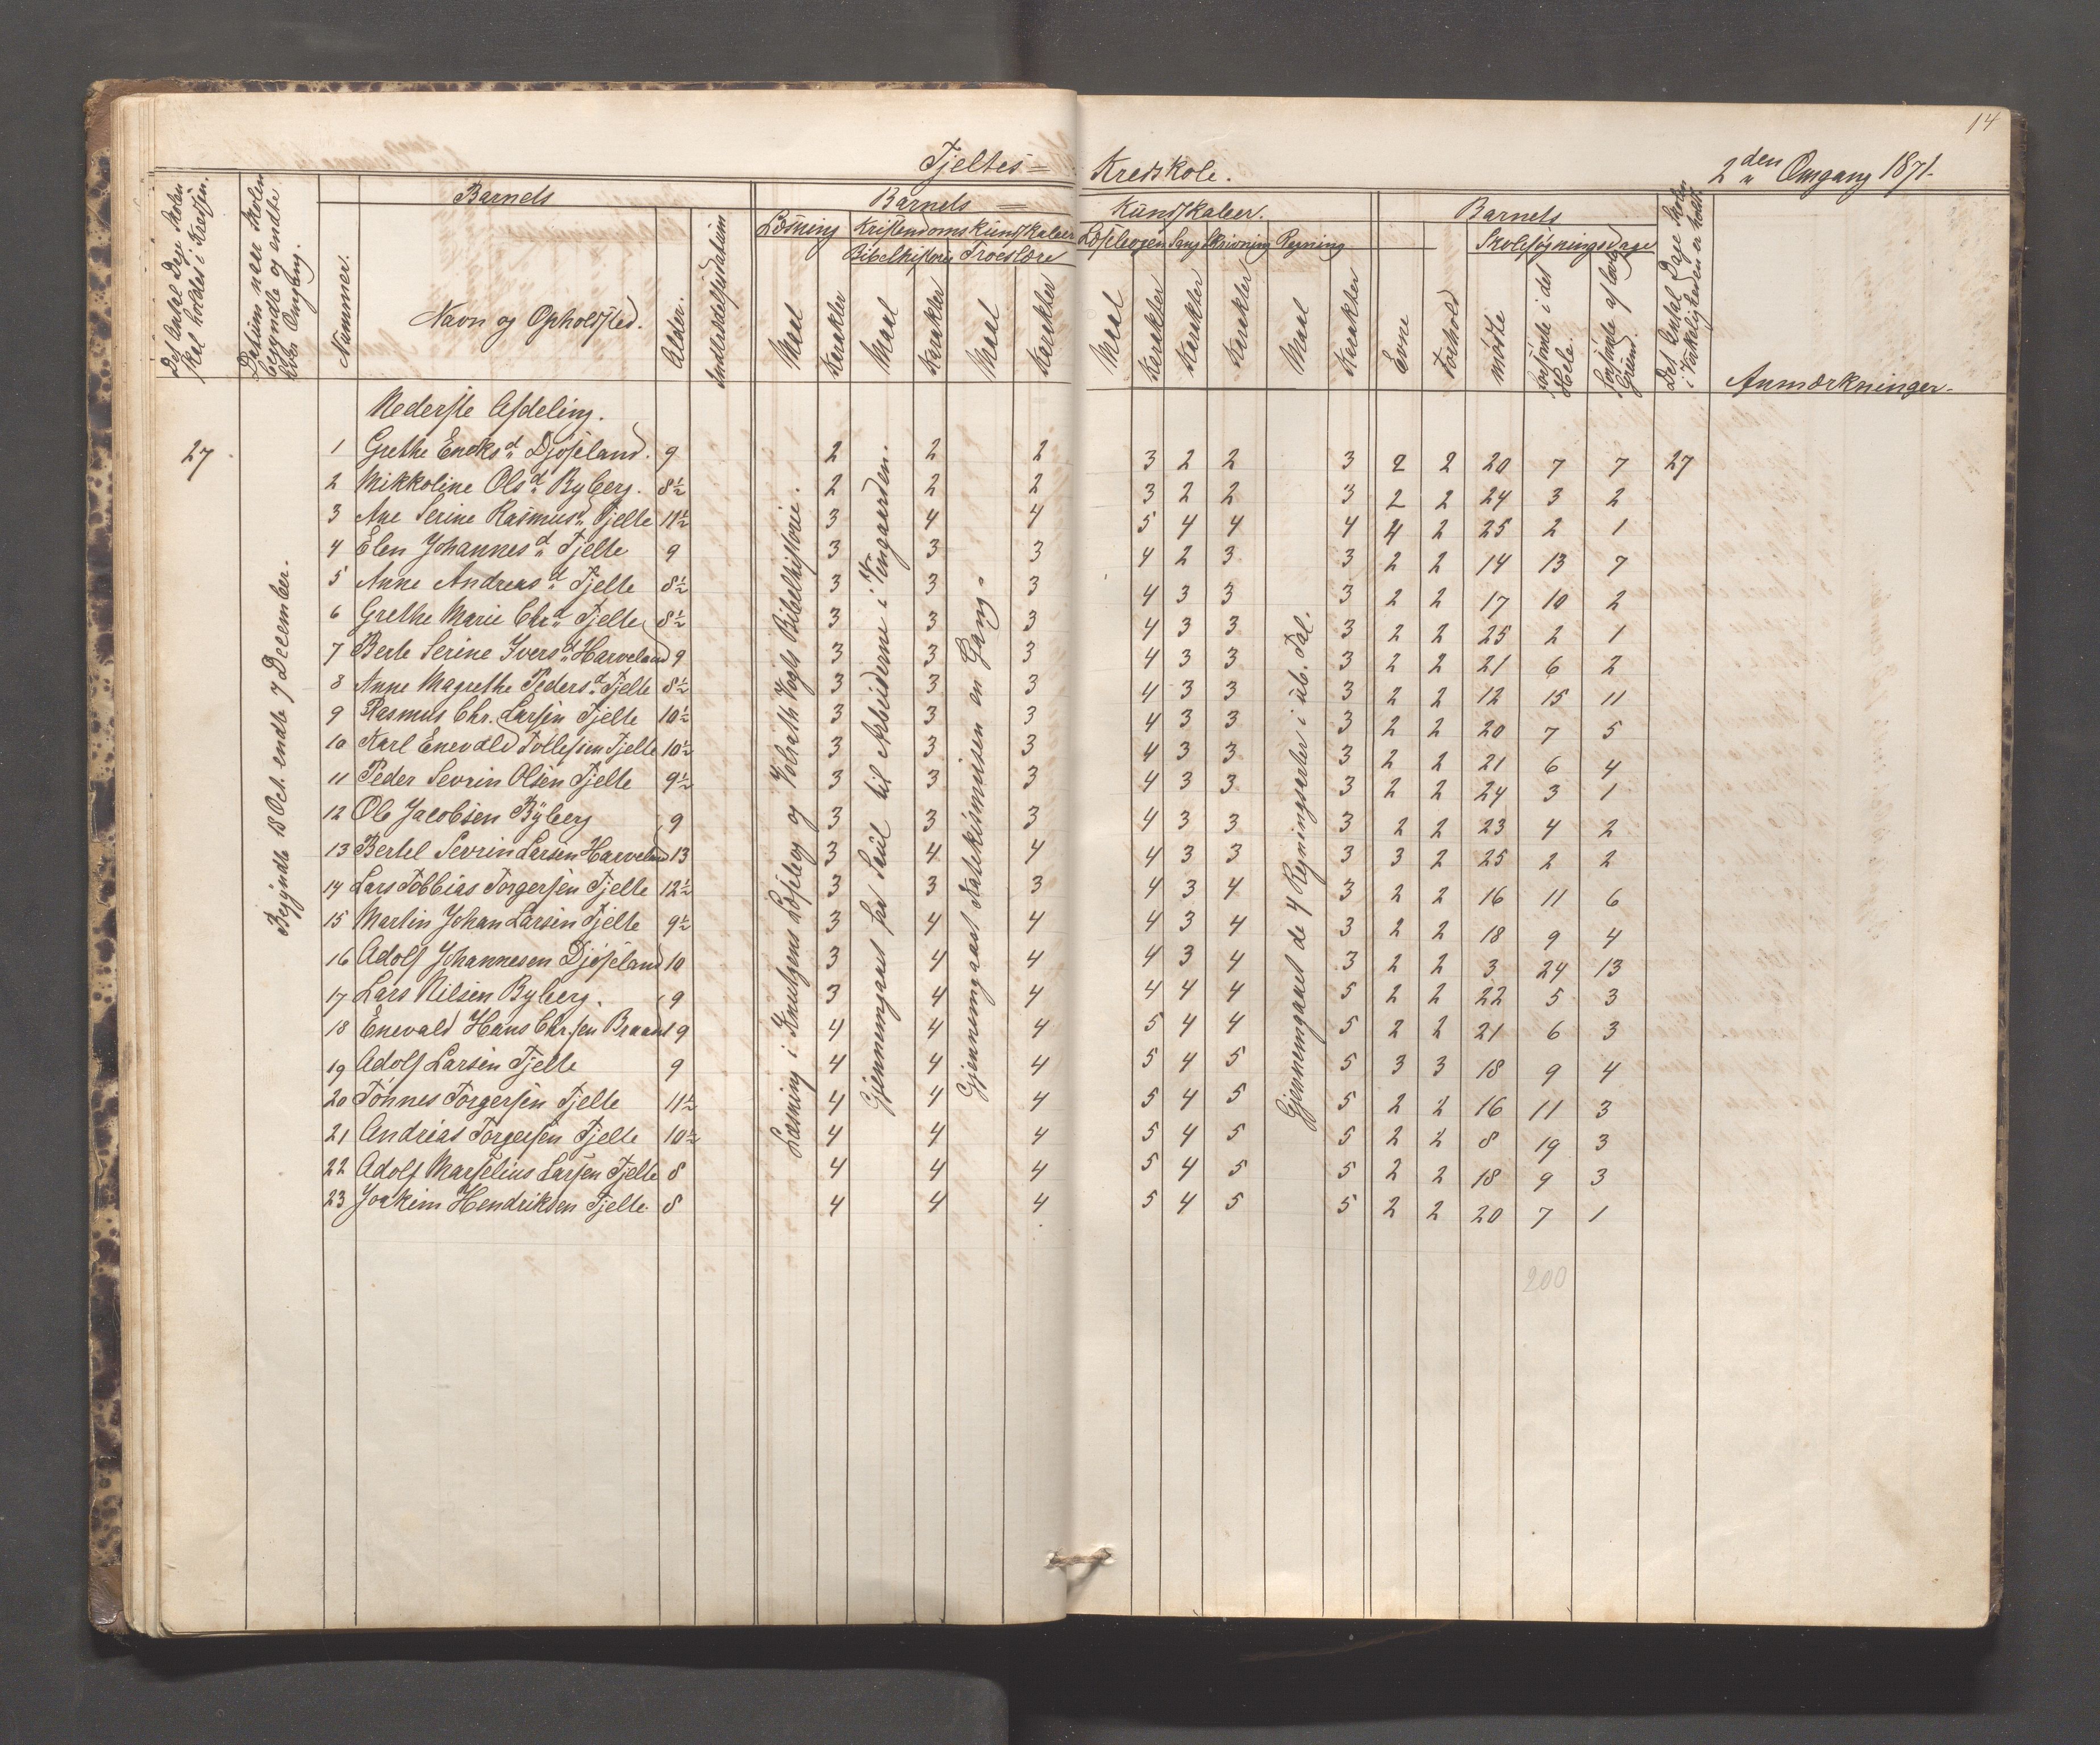 14
Tjeltes = Kredsskole. 2den Omgang 1871.
Det Antal Dage Skolen skal holdes i Kredsen.
Datum naar Skolen begyndte og endte hver Omgang.
Nummer.
Barnets
Navn og Opholdsted.
Alder.
Indtrædelsesdatum
Barnets = Kundskaber.
Læsning Kristendomskundskaber Læsebogen Sang Skrivning Regning
Bibelhistorie Troeslære
Maal Karakter Maal Karakter Maal Karakter Maal Karakter Karakter Karakter Maal Karakter
Barnets
Evne Forhold
Skolesøgningsdage
mødte forsømte i det Hele. forsømte af lovlig Grund.
Det Antal Dage Skolen i Virkeligheden er holdt.
Anmærkninger.
Nederste Afdeling.
27 1 Grethe Eneksd Djøseland. 9 2 2 2 3 2 2 3 2 2 20 7 7 27
2 Mikkoline Olsd Byberg. 8½ 2 2 2 3 2 2 3 2 2 24 3 2
3 Ane Serine Rasmusd Tjelte 11½ 3 4 4 5 4 4 4 4 2 25 2 1
4 Elen Johannesd Tjelte 9 3 3 3 4 2 3 3 2 2 14 13 7
5 Anne Andreasd Tjelte 8½ 3 3 3 4 3 3 3 2 2 17 10 2
6 Grethe Marie Chrd Tjelte 8½ 3 3 3 4 3 3 3 2 2 25 2 1
7 Berte Serine Iversd Harveland 9 3 3 3 4 3 3 3 2 2 21 6 2
8 Anne Magrethe Pedersd Tjelte 8½ 3 3 3 4 3 3 3 2 2 12 15 11
9 Rasmus Chr. Larsen Tjelte 10½ 3 3 3 4 3 3 3 2 2 20 7 5
10 Karl Enevald Tollefsen Tjelte 10½ 3 3 3 4 3 3 3 2 2 21 6 4
11 Peder Sevrin Olsen Tjelte 9½ 3 3 3 4 3 3 3 2 2 24 3 1
12 Ole Jacobsen Byberg 9 3 3 3 4 3 3 3 2 2 23 4 2
13 Bertel Sevrin Larsen Harveland 13 3 4 4 4 3 3 3 3 2 25 2 2
14 Lars Tobbias Torgersen Tjelte 12½ 3 3 3 4 3 4 3 2 2 16 11 6
15 Martin Johan Larsen Tjelte 9½ 3 4 4 4 3 4 3 2 2 18 9 4
16 Adolf Johannesen Djøseland 10 3 4 4 4 3 4 3 2 2 3 24 13
17 Lars Nilsen Byberg. 9 3 4 4 4 4 4 5 2 2 22 5 3
18 Enevald Hans Chr.sen Braand 9 4 4 4 5 4 4 5 2 2 21 6 3
19 Adolf Larsen Tjelte 9 4 4 4 5 4 5 5 3 3 18 9 4
20 Tønnes Torgersen Tjelte 11½ 4 4 4 5 4 5 5 2 2 16 11 3
21 Andrias Torgersen Tjelte 10½ 4 4 4 5 4 5 5 2 2 8 19 3
22 Adolf Marselius Larsen Tjelte 8 4 4 4 5 4 5 5 2 2 18 9 3
23 Joakim Hendriksen Tjelte 8 4 4 4 5 4 5 5 2 2 20 7 1
200
Begyndte 18 Oct. endte 7 December.
Læsning i Knutzens Læsebog og Volrath Vogts Bibelhistorie.
Gjennemgaaet fra Saul til Arbeiderne i Vingaarden.
Gjennemgaaet Katekismusen en Gang.
Gjennemgaaet de 4 Regningsarter i ub. Tal.